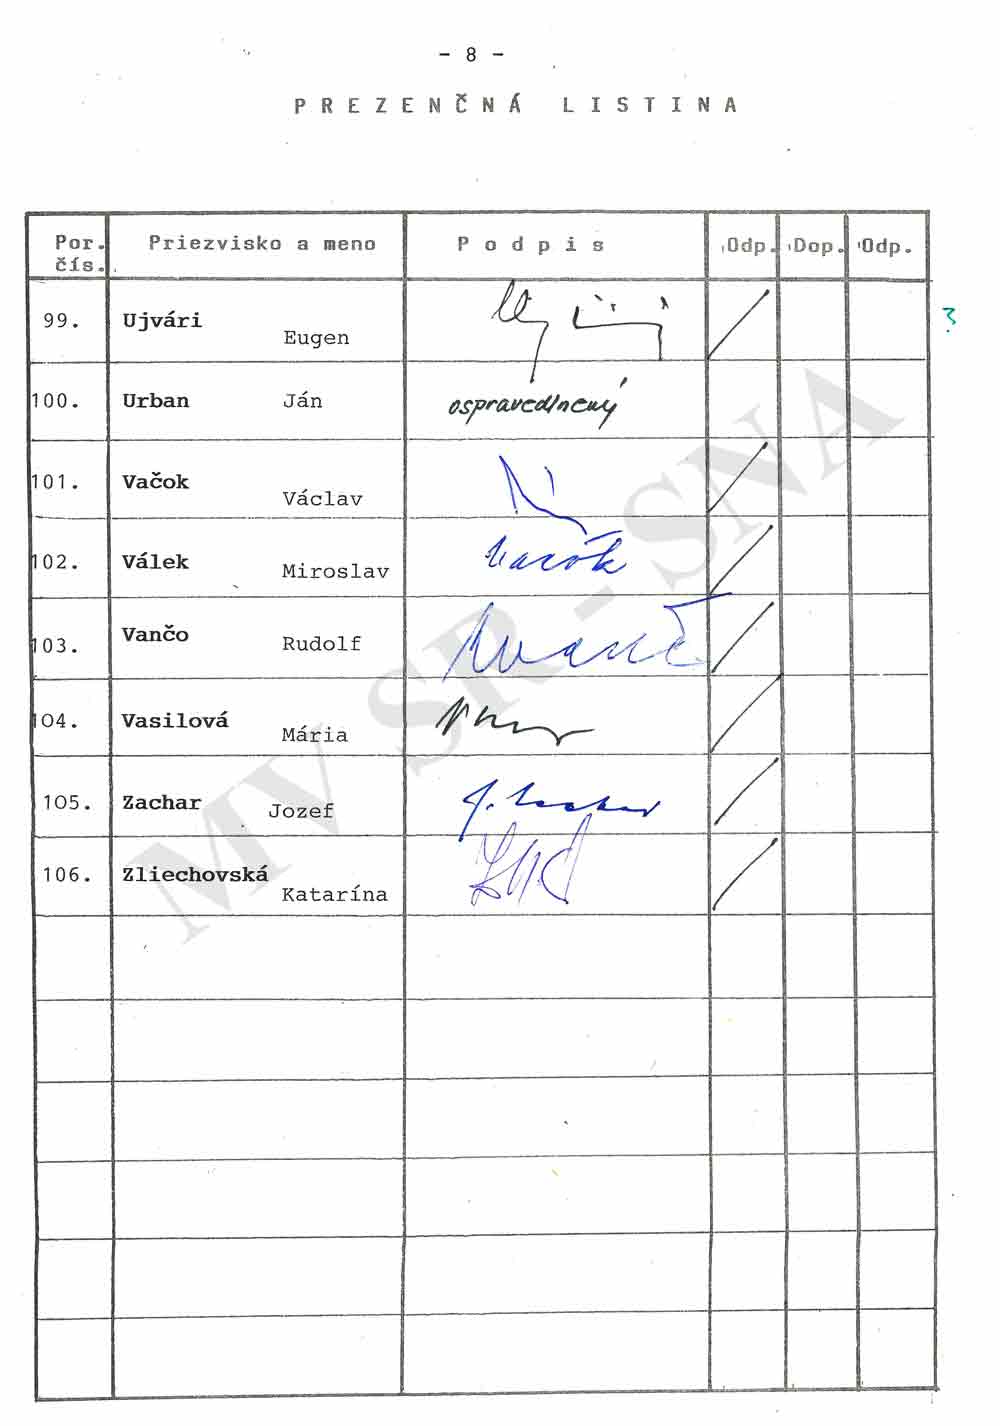 - 8 -
PREZENČNÁ LISTINA
Por. čís. Priezvisko a meno Podpis Odp. Dop. Odp.
99. Ujvári Eugen
100. Urban Ján ospravedlnený
101. Vačok Václav
102. Válek Miroslav Vačok
103. Vančo Rudolf
104. Vasilová Mária
105. Zachar Jozef J. Zachar
106. Zliechovská Katarína
MV SR - SNA